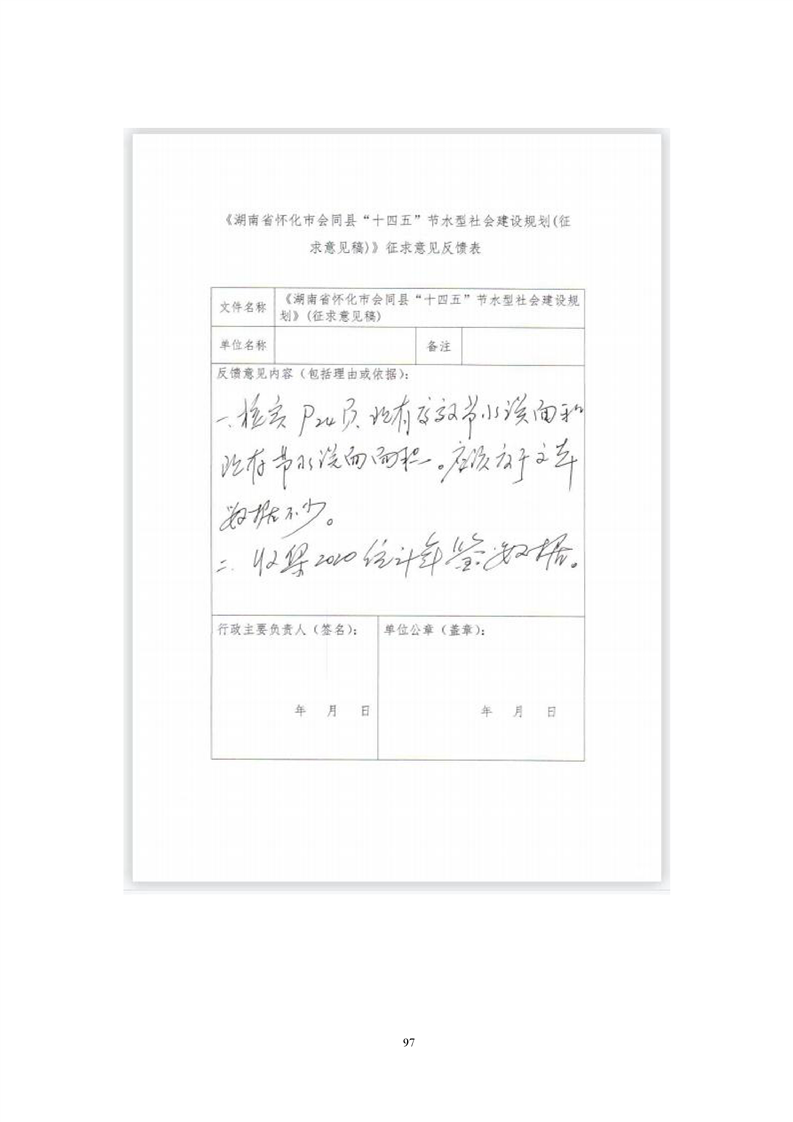 《湖南省怀化市会同县“十四五”节水型社会建设规划(征
求意见稿)》征求意见反馈表
文件名称
《湖南省怀化市会同县“十四五”节水型社会建设规
划》(征求意见稿)
单位名称
备注
反馈意见内容（包括理由或依据）：
一、核实P24页
节水
面积
节水
面积。
数据不少。
二、收集2020统计年鉴数据。
行政主要负责人（签名）：
单位公章（盖章）：
年 月 日
年 月 日
97